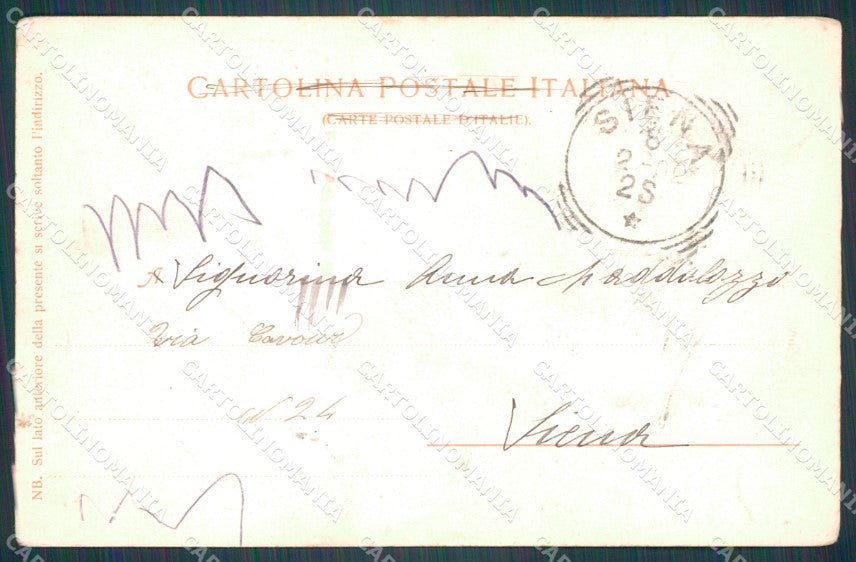 CARTOLINA POSTALE ITALIANA
(CARTE POSTALE D'ITALIE).
SIENA
2S
A Signorina Anna Maddalozzo
Via Cavour
N 24
Siena
NB. Sul lato anteriore della presente si scrive soltanto l'indirizzo.
CARTOLINOMANIA